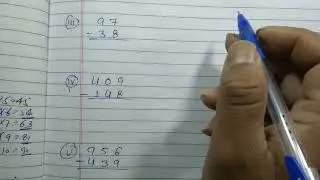 iii) 97
- 38
iv) 409
- 198
v) 956
- 439
15=45
6=54
7=63
9=81
10=90